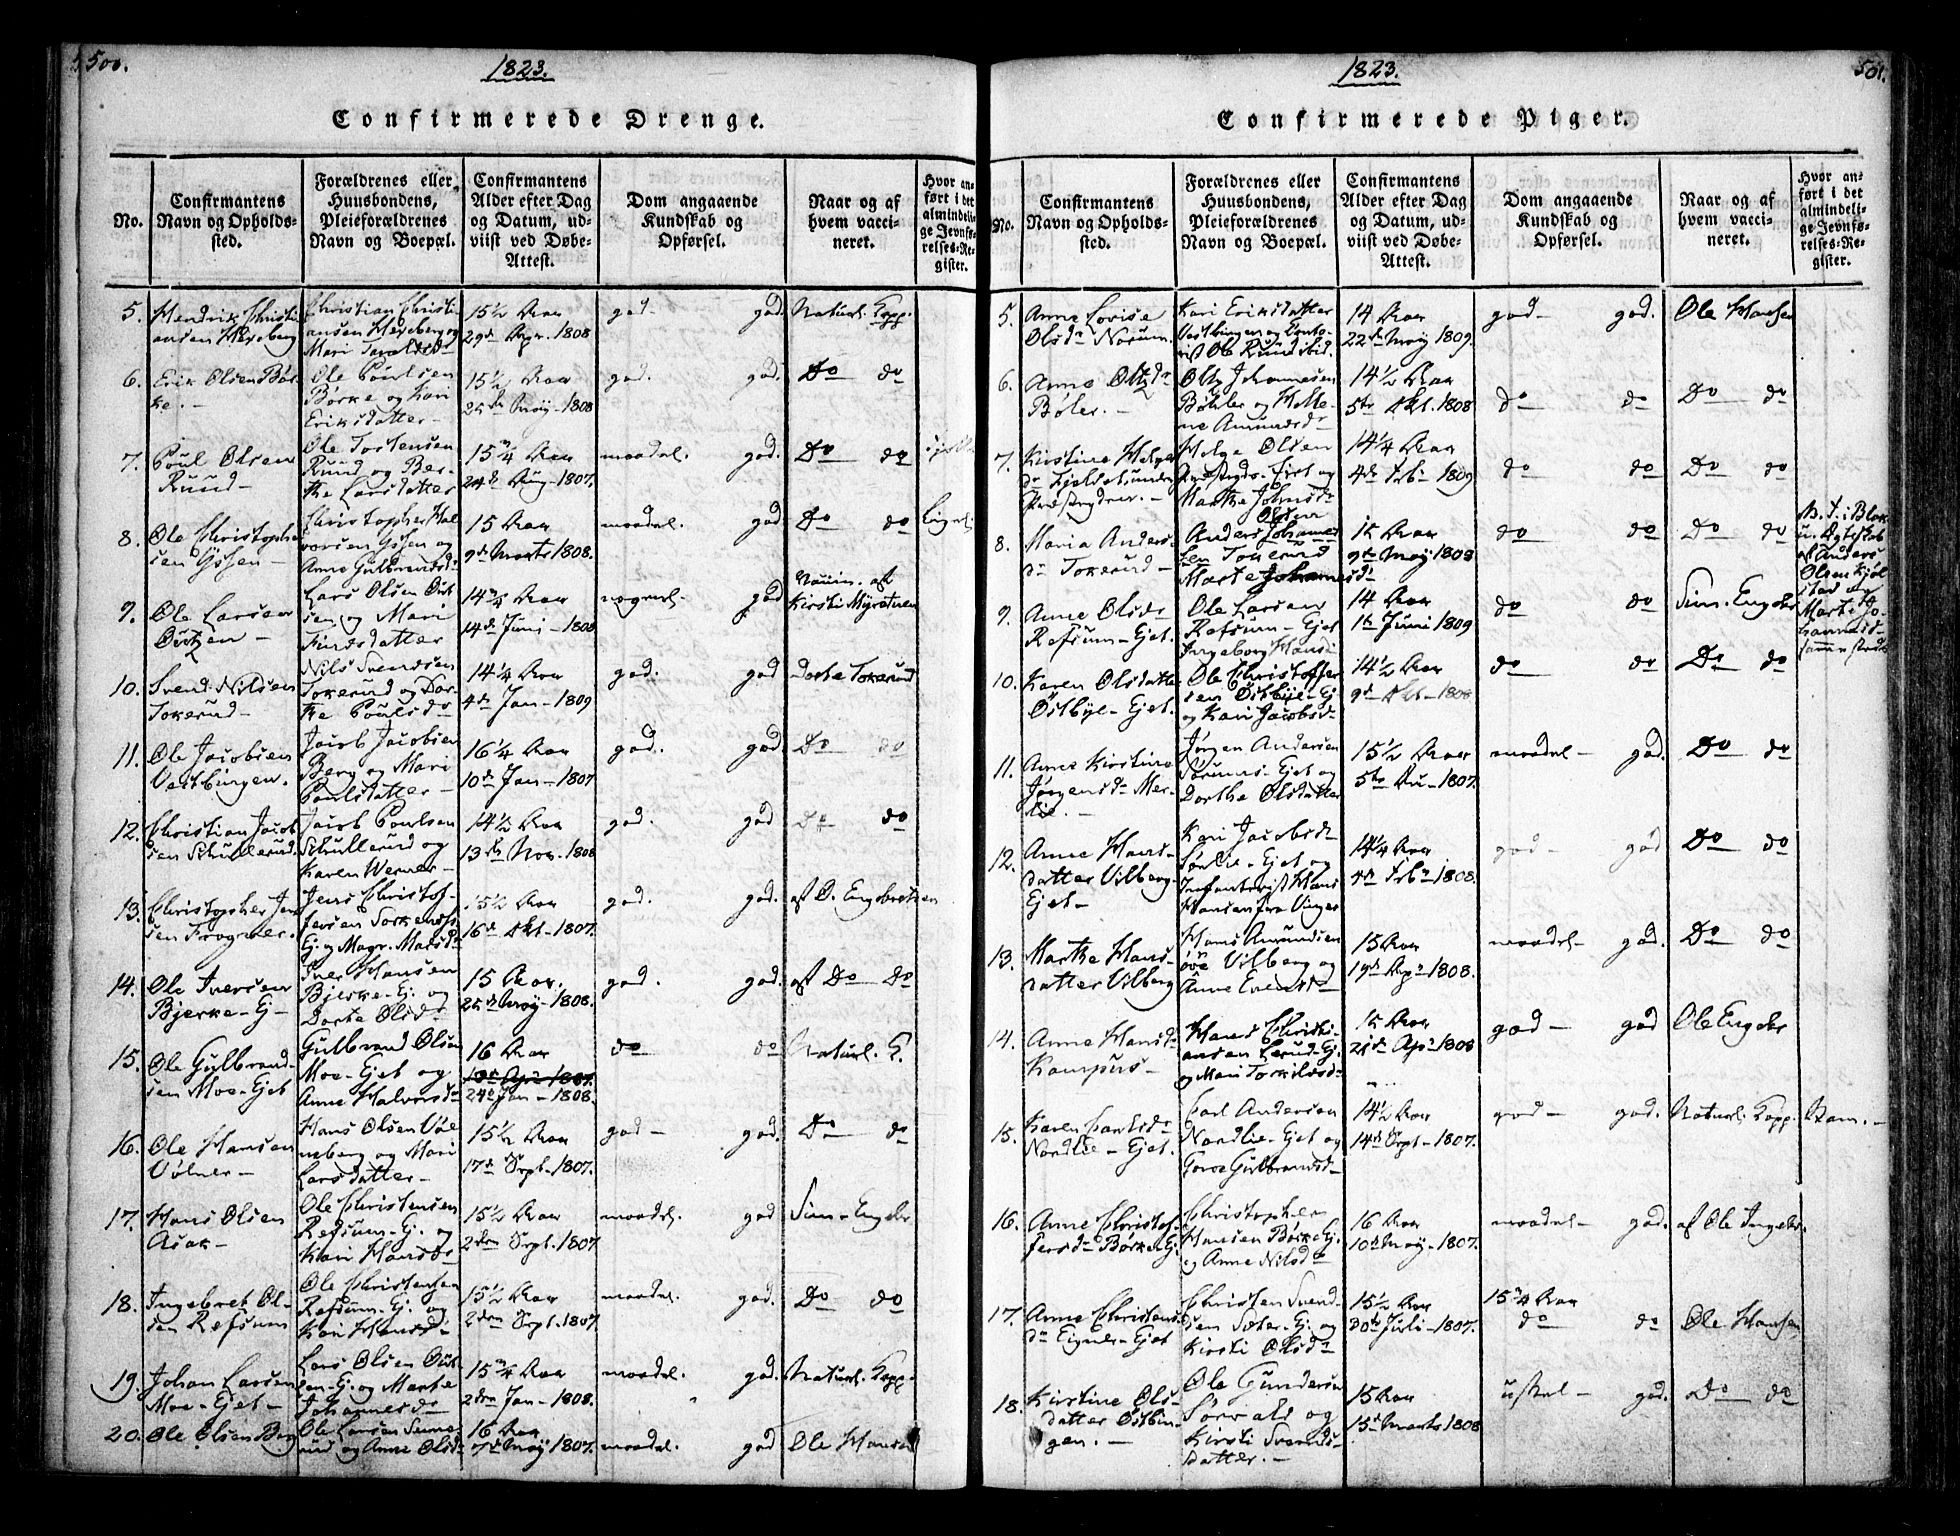 500.
1823.
Confirmerede Drenge.
No.
Confirmantens Navn og Opholdssted.
Forældrenes eller Huusbondens, Pleieforældrenes Navn og Boepæl.
Confirmantens Alder efter Dag og Datum, udviist ved Døbe-Attest.
Dom angaaende Kundskab og Opførsel.
Naar og af hvem vaccineret.
Hvor anført i det almindelige Jevnførelses-Register.
5. Hendrik Christiansen
Christian Christiansen og Mari
15 1/2 Aar 29de Apr. 1808
god god
Naturl. Kopp.
6. Erik Olsen Børke.
Ole Poulsen Børke og Kari Eriksdatter
15 1/2 Aar 25de Mäy 1808
god. god.
Do do
7. Poul Olsen Ruud
Ole Torstensen Ruud og Berthe Larsdatter
15 3/4 Aar 24de Aug 1807.
maadel. god.
Do do
8. Ole Christophersen
Christopher Halvorsen og Anne Gulbrandsdr
15 Aar 9de Marts 1808.
maadel. god
Do do
9. Ole Larsen
Lars Olsen og Mari
14 3/4 Aar 14de Juni 1808
god
af Kirsti
10. Svend Nilsen Tokerud
Nils Svendsen Tokerud og Dorthe Poulsdr
14 1/4 Aar 4de Jan 1809
god. god
Dorte Tokerud
11. Ole Jacobsen Vestbingen.
Jacob Jacobsen Berg og Mari Poulsdatter
16 1/4 Aar 10de Jan 1807
god. god
Do do
12. Christian Jacobsen Schullerud.
Jacob Poulsen Schullerud og Karen Werner
14 1/2 Aar 13de Nov. 1808
god. god
Do do
13. Christopher Jensen Frogner.
Jens Christoffersen og Magr. Madsdr
15 1/2 Aar 16de Okt. 1807.
god. god.
af O. Engebretsen
14. Ole Iversen Bjerke-Ej
Iver Hansen Bjerke-Ej. og Dorte Olsdr
15 Aar. 25de Mäy 1808.
god. god.
af Do Do
15. Ole Gulbrandsen Moe-Ejet
Gulbrand Olsen Moe-Ejet og Anne Halvorsdr
16 Aar 24de Jan 1808.
do do
Naturl. K.
16. Ole Hansen Vølner
Hans Olsen og Mari Larsdatter
15 1/2 Aar 17de Sept. 1807.
god god.
Do do
17. Hans Olsen Asak
Ole Christensen Refsum-Ej. og Kari Hansdr
15 1/2 Aar 2den Sept. 1807
maadel. god
Sim. Engebr
18. Ingebret Olsen Refsum
Ole Christensen Refsum-Ej. og Kari Hansd
15 1/2 Aar 2den Sept. 1807
maadel. god.
Do do
19. Johan Larsen Moe-Ejet
Lars Olsen og Marte Johannesdr
15 3/4 Aar 2den Jan 1808.
maadel. god.
Naturl. Kopp.
20. Ole Olsen Berg
Ole Larsen og Anne Olsdr
16 Aar 7de Mäy 1807.
maadel. god
Ole Hansen
501.
1823.
Confirmerede Piger.
No.
Confirmantens Navn og Opholdssted.
Forældrenes eller Huusbondens, Pleieforældrenes Navn og Boepæl.
Confirmantens Alder efter Dag og Datum, udviist ved Døbe-Attest.
Dom angaaende Kundskab og Opførsel.
Naar og af hvem vaccineret.
Hvor anført i det almindelige Jevnførelses-Register.
5. Anne Lovise Olsdr Norum.
Kari Eriksdatter Vestbingen og Ole Ruud
14 Aar 22de Mäy 1809.
god god.
Ole Hansen
6. Anne Bøler.
Johannesen Bøhler og Helene Amundsdr
14 1/2 Aar 5te Okt. 1808
do do
Do do
7. Kirstine Helgedr
Helge Olsen og Marthe Johnsdr
14 1/4 Aar 4de Feb. 1809
do do
Do do
8. Maria Andersdr Tokerud
Anders Johannessen Olsen Tokerud Marte Johannesdr
15 Aar 9de Mäy 1808
do do
Do do
Anders Olsen Marte Johannesd
9. Anne Olsdr Refsum-Ejet.
Ole Larsen Refsum-Ejet Ingeborg Hansd
14 Aar 1te Juni 1809
do do
Sim. Engebr
10. Karen Olsdatter Østbye-Ejet.
Ole Christoffersen Østbye-Ej og Kari Jacobsd
14 1/2 Aar 9de Okt. 1808
do do
Do do
11. Anne Kirstine Jørgensdr Merlie.
Jørgen Andersen Ejet og Dorthe Olsdatter
15 1/2 Aar 5te 1807.
maadel god.
Do do
12. Anne Hansdatter Vilberg-Ejet
Kari Jacobsd Ejet og Infanterist Hans Hansen fra Vinger
14 1/4 Aar 4de Feb. 1808.
god god
Do do
13. Marthe Hansdatter Vilberg
Hans Amundsen Vilberg og Anne Evensdr
15 Aar 19de Apr. 1808.
maadel god.
Do do
14. Anne Hansdr Kampus
Hans Christiansen Lerud-Ej. og Mari
15 Aar 21de Apr. 1808
god god
Ole Engebr
15. Karen Carlsdr Nordlie-Ejet.
Carl Andersen Nordlie-Ejet og Gulbransd
14 1/2 Aar 14de Sept. 1807.
god god.
Naturl. Kopp.
16. Anne Christoffersdr Børke-Ej.
Christopher Hansen Børke-Ej. og Anne Nilsdr
16 Aar 10de Mäy 1807.
maadel god.
af Ole Ingebr
17. Anne Christensdr Eigner-Ejet
Christen Svendsen Ej. og Kirsti Olsdr
15 1/2 Aar 30te Juli 1807.
15 3/4 Aar do do
Ole Hansen
18. Kirstine Olsdatter Østbingen.
Ole Gundersen og Kirsti Svendsdatter.
15 Aar 15de Marts 1808
uskel god.
Do do